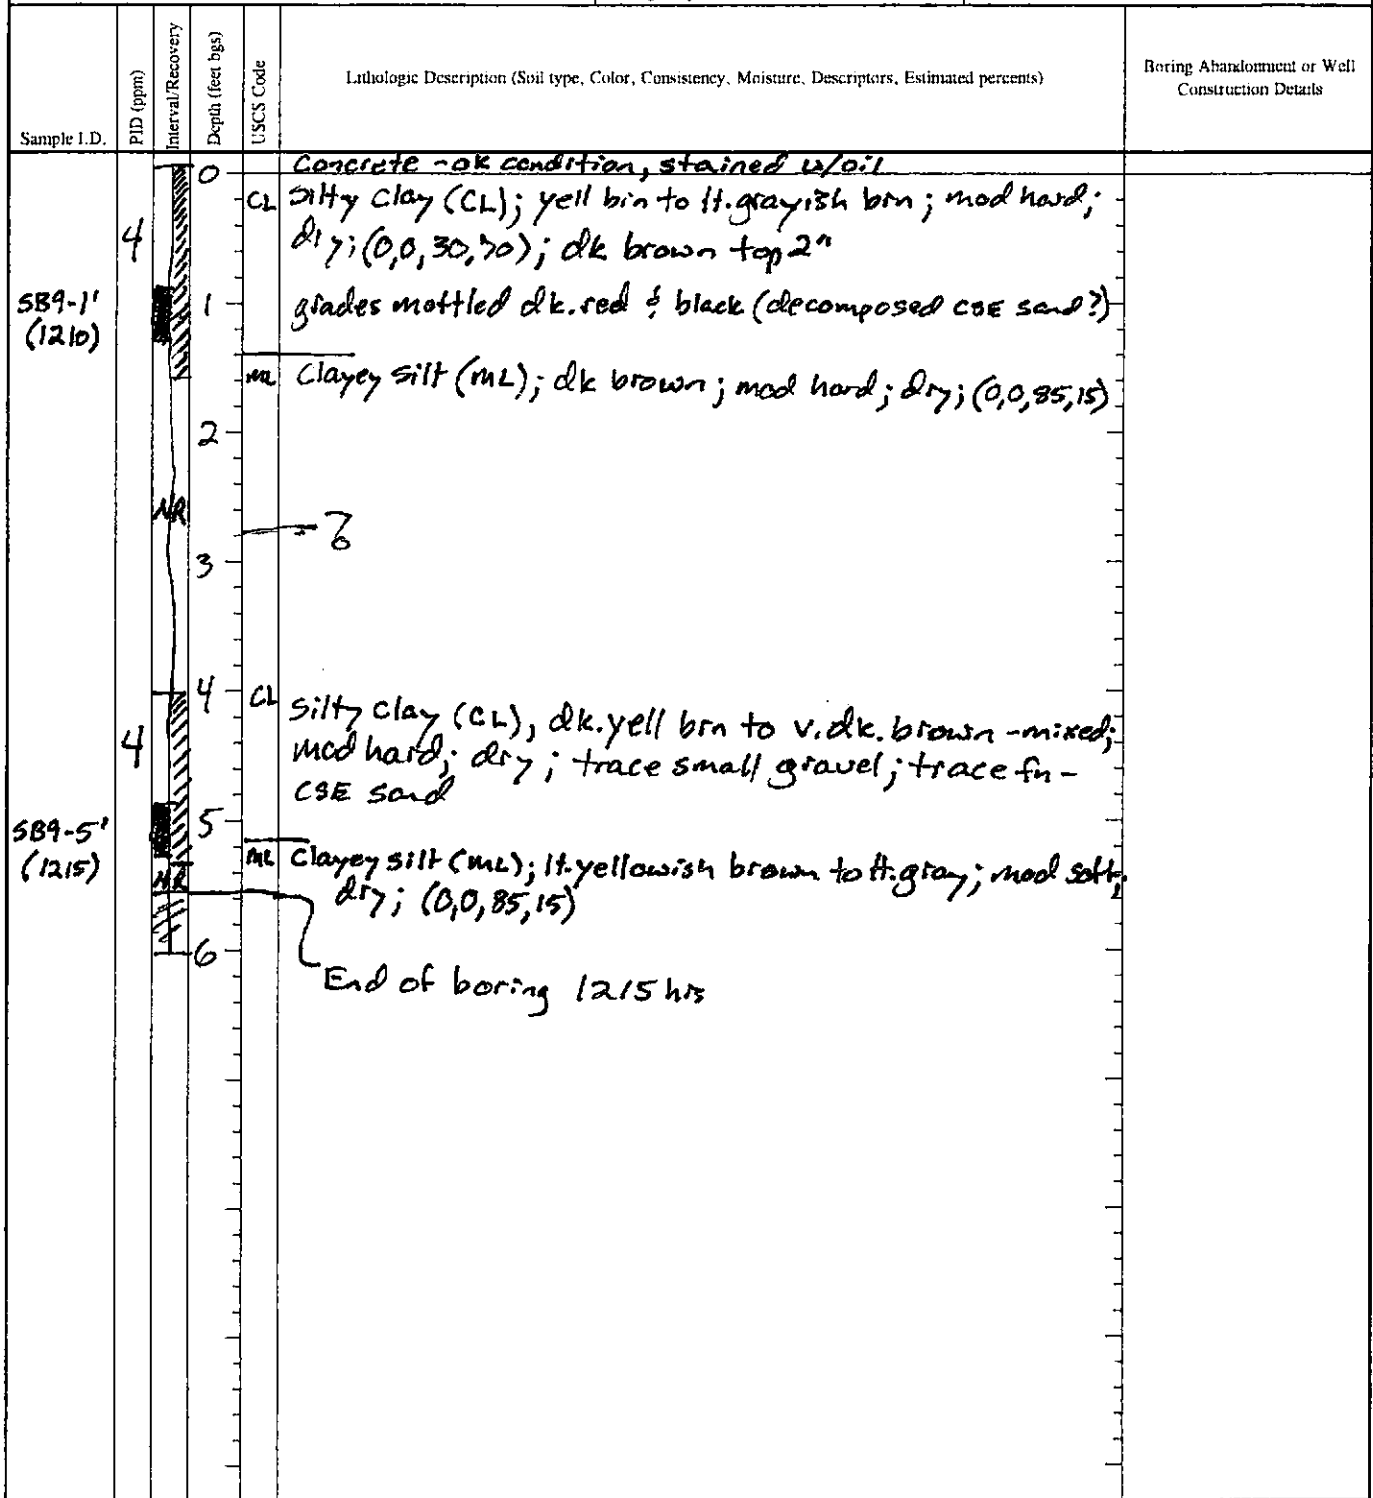 Sample I.D.
PID (ppm)
Interval/Recovery
Depth (feet bgs)
USCS Code
Lithologic Description (Soil type, Color, Consistency, Moisture, Descriptors, Estimated percents)
Boring Abandonment or Well
Construction Details
0
Concrete - ok condition, stained w/oil
CL
Silty Clay (CL); yell brn to lt. grayish brn; mod hard;
4
dry; (0,0,30,70); dk brown top 2"
SB9-1'
1
grades mottled dk. red & black (decomposed CSE sand?)
(1210)
ML
Clayey silt (ML); dk brown; mod hard; dry; (0,0,85,15)
2
NR
?
3
4
CL
Silty clay (CL), dk. yell brn to v. dk. brown - mixed;
4
mod hard; dry; trace small gravel; trace fn-
CSE sand
SB9-5'
5
(1215)
ML
Clayey silt (ML); lt. yellowish brown to lt. gray; mod soft;
NR
dry; (0,0,85,15)
6
End of boring 1215 hrs